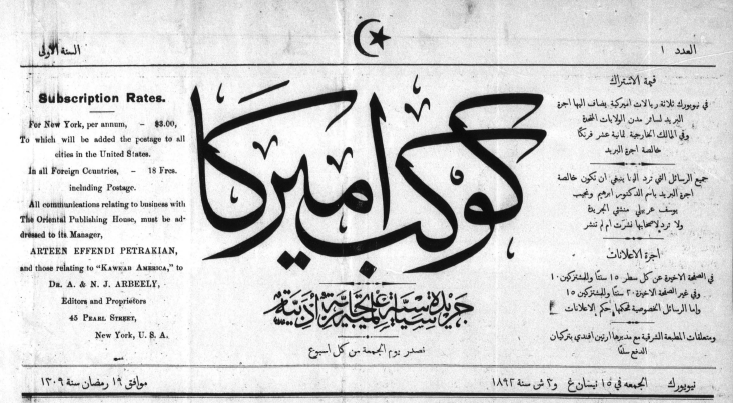 العدد ١
السنة الاولى
قيمة الاشتراك
في نيويورك ثلاثة ريالات اميركية يضاف اليها اجرة
البريد لسائر مدن الولايات المتحدة
وفي الممالك الخارجية ثمانية عشر فرنكًا
خالصة اجرة البريد
جميع الرسائل التي ترد الينا ينبغي ان تكون خالصة
اجرة البريد باسم الدكتور ابرهيم ونجيب
يوسف عربيلي منشئي الجريدة
ولا ترد لاصحابها نشرت ام لم تنشر
اجرة الاعلانات
في الصفحة الاخيرة عن كل سطر ١٥ سنتًا والمشتركين ١٠
وفي غير الصفحة الاخيرة ٢٠ سنتًا والمشتركين ١٥
واما الرسائل الخصوصية فحكمها حكم الاعلانات
ومتعلقات المطبعة الشرقية مع مديرها ارتين افندي بتركيان
الدفع سلفًا
كوكب اميركا
جريدة سياسية علمية تجارية أدبية
تصدر يوم الجمعة من كل اسبوع
Subscription Rates.
For New York, per annum, – $3.00,
To which will be added the postage to all
cities in the United States.
In all Foreign Countries, – 18 Frcs.
including Postage.
All communications relating to business with
The Oriental Publishing House, must be ad-
dressed to its Manager,
ARTEEN EFFENDI PETRAKIAN,
and those relating to "KAWKAB AMERICA," to
DR. A. & N. J. ARBEELY,
Editors and Proprietors
45 PEARL STREET,
New York, U. S. A.
نيويورك الجمعه في ١٥ نيسان غ و٣ ش سنة ١٨٩٢
موافق ١٩ رمضان سنة ١٣٠٩